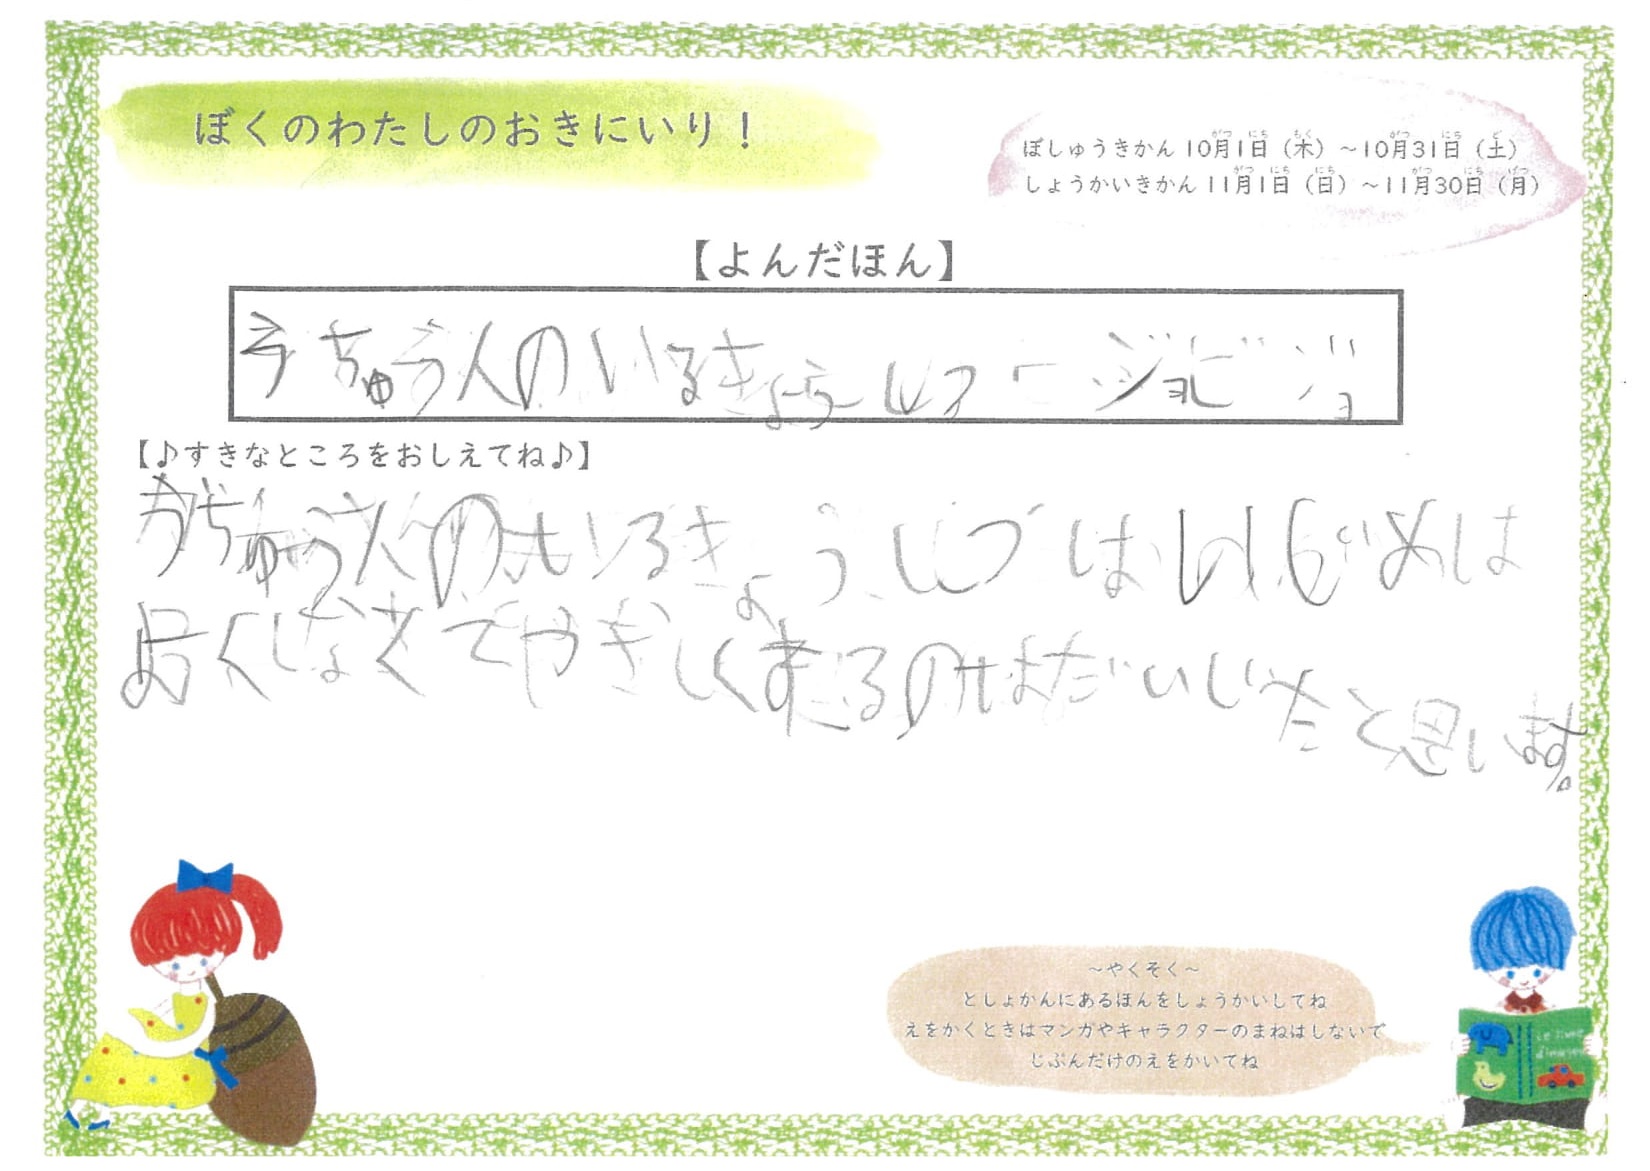 ぼくのわたしのおきにいり！
ぼしゅうきかん 10月1日（木）～10月31日（土）
しょうかいきかん 11月1日（日）～11月30日（月）
【よんだほん】
うちゅう人のいるきょうしつ ージョビジョ
【♪すきなところをおしえてね♪】
うちゅう人のいるきょうしつは いじめは
良くしなくてやさしくするのはだいじだと思います。
～やくそく～
としょかんにあるほんをしょうかいしてね
えをかくときはマンガやキャラクターのまねはしないで
じぶんだけのえをかいてね